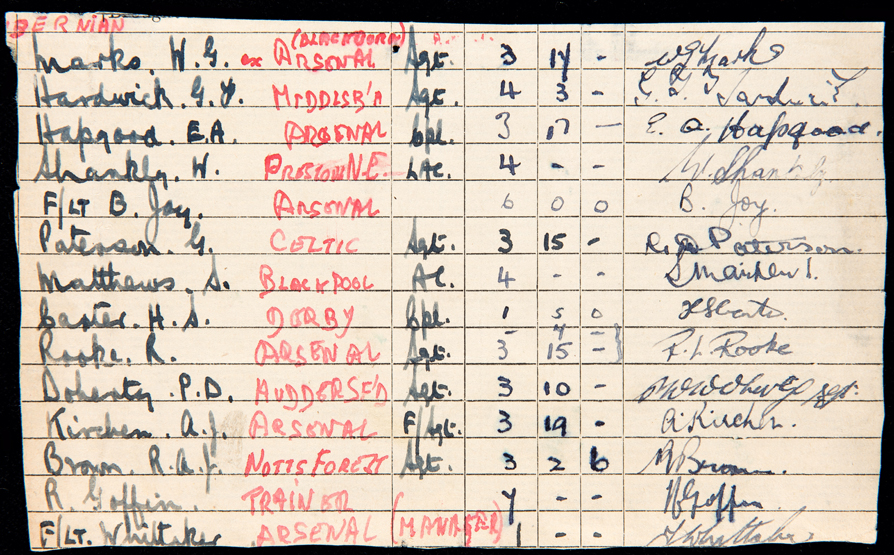 BERNIAN
(BLACKBURN)
Marks. W.G. ex ARSENAL Sgt. 3 14 - W G Marks
Hardwick. G.F. MIDDLSB'H Sgt. 4 3 -
Hapgood. E.A. ARSENAL Cpl. 3 17 - E. A. Hapgood.
Shankly. W. PRESTON N.E. LAC. 4 - - W. Shankly
F/LT B. Joy. ARSENAL 6 0 0 B. Joy.
Paterson. G. CELTIC Sgt. 3 15 - Paterson.
Matthews. S. BLACKPOOL AC. 4 - - S Matthews.
Carter. H.S. DERBY Cpl. 1 5 0 H S Carter.
Rooke. R. ARSENAL Sgt. 3 15 - } R. L. Rooke
Doherty. P.D. HUDDERSF'D Sgt. 3 10 - Sgt.
Kirchen. A.J. ARSENAL F/Sgt. 3 19 - A. Kirchen.
Brown. R.A.J. NOTTS FOREST Sgt. 3 2 6 R Brown.
R. Goffin. TRAINER 4 - - Goffin
F/LT. Whittaker ARSENAL (MANAGER) 1 - - T Whittaker